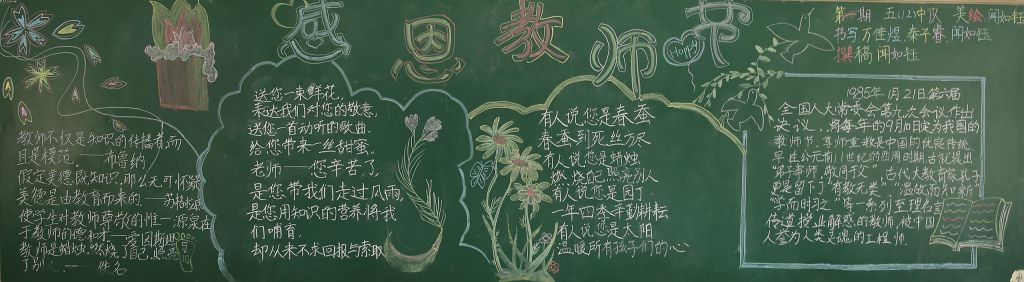 感恩教师节
第一期 五(12)中队 美绘 闻如钰
书写 万佳煜 秦子睿 闻如钰
撰稿 闻如钰
教师不仅是知识的传播者,而
且是模范。——布鲁纳
假定美德既知识,那么无可怀疑
美德是由教育而来的——苏格拉底
使学生对教师尊崇的惟一源泉在
于教师的德和才——爱因斯坦
教师是蜡烛,燃烧了自己,照亮
了别 ——佚名
送您一束鲜花,
表达我们对您的敬意,
送您一首动听的歌曲.
给您带来一丝甜蜜.
老师——您辛苦了.
是您带我们走过风雨,
是您用知识的营养将我
们哺育.
却从来不求回报与索取
有人说您是春蚕
春蚕到死丝方尽
有人说您是蜡烛
燃烧自己照亮别人
有人说您是园丁
一年四季辛勤耕耘
有人说您是太阳
温暖所有孩子们的心
1985年1月21日第六届
全国人大常委会第九次会议作出
决议,将每年的9月10日定为我国的
教师节.尊师重教是中国的优良传统
早在公元前11世纪的西周时期,就提出
"弟子事师,敬同于父"古代大教育家孔子
更是留下了"有教无类""温故而知新"
"学而时习之"等一系列至理名言
传道授业解惑的教师,被中国
人誉为人类灵魂的工程师.